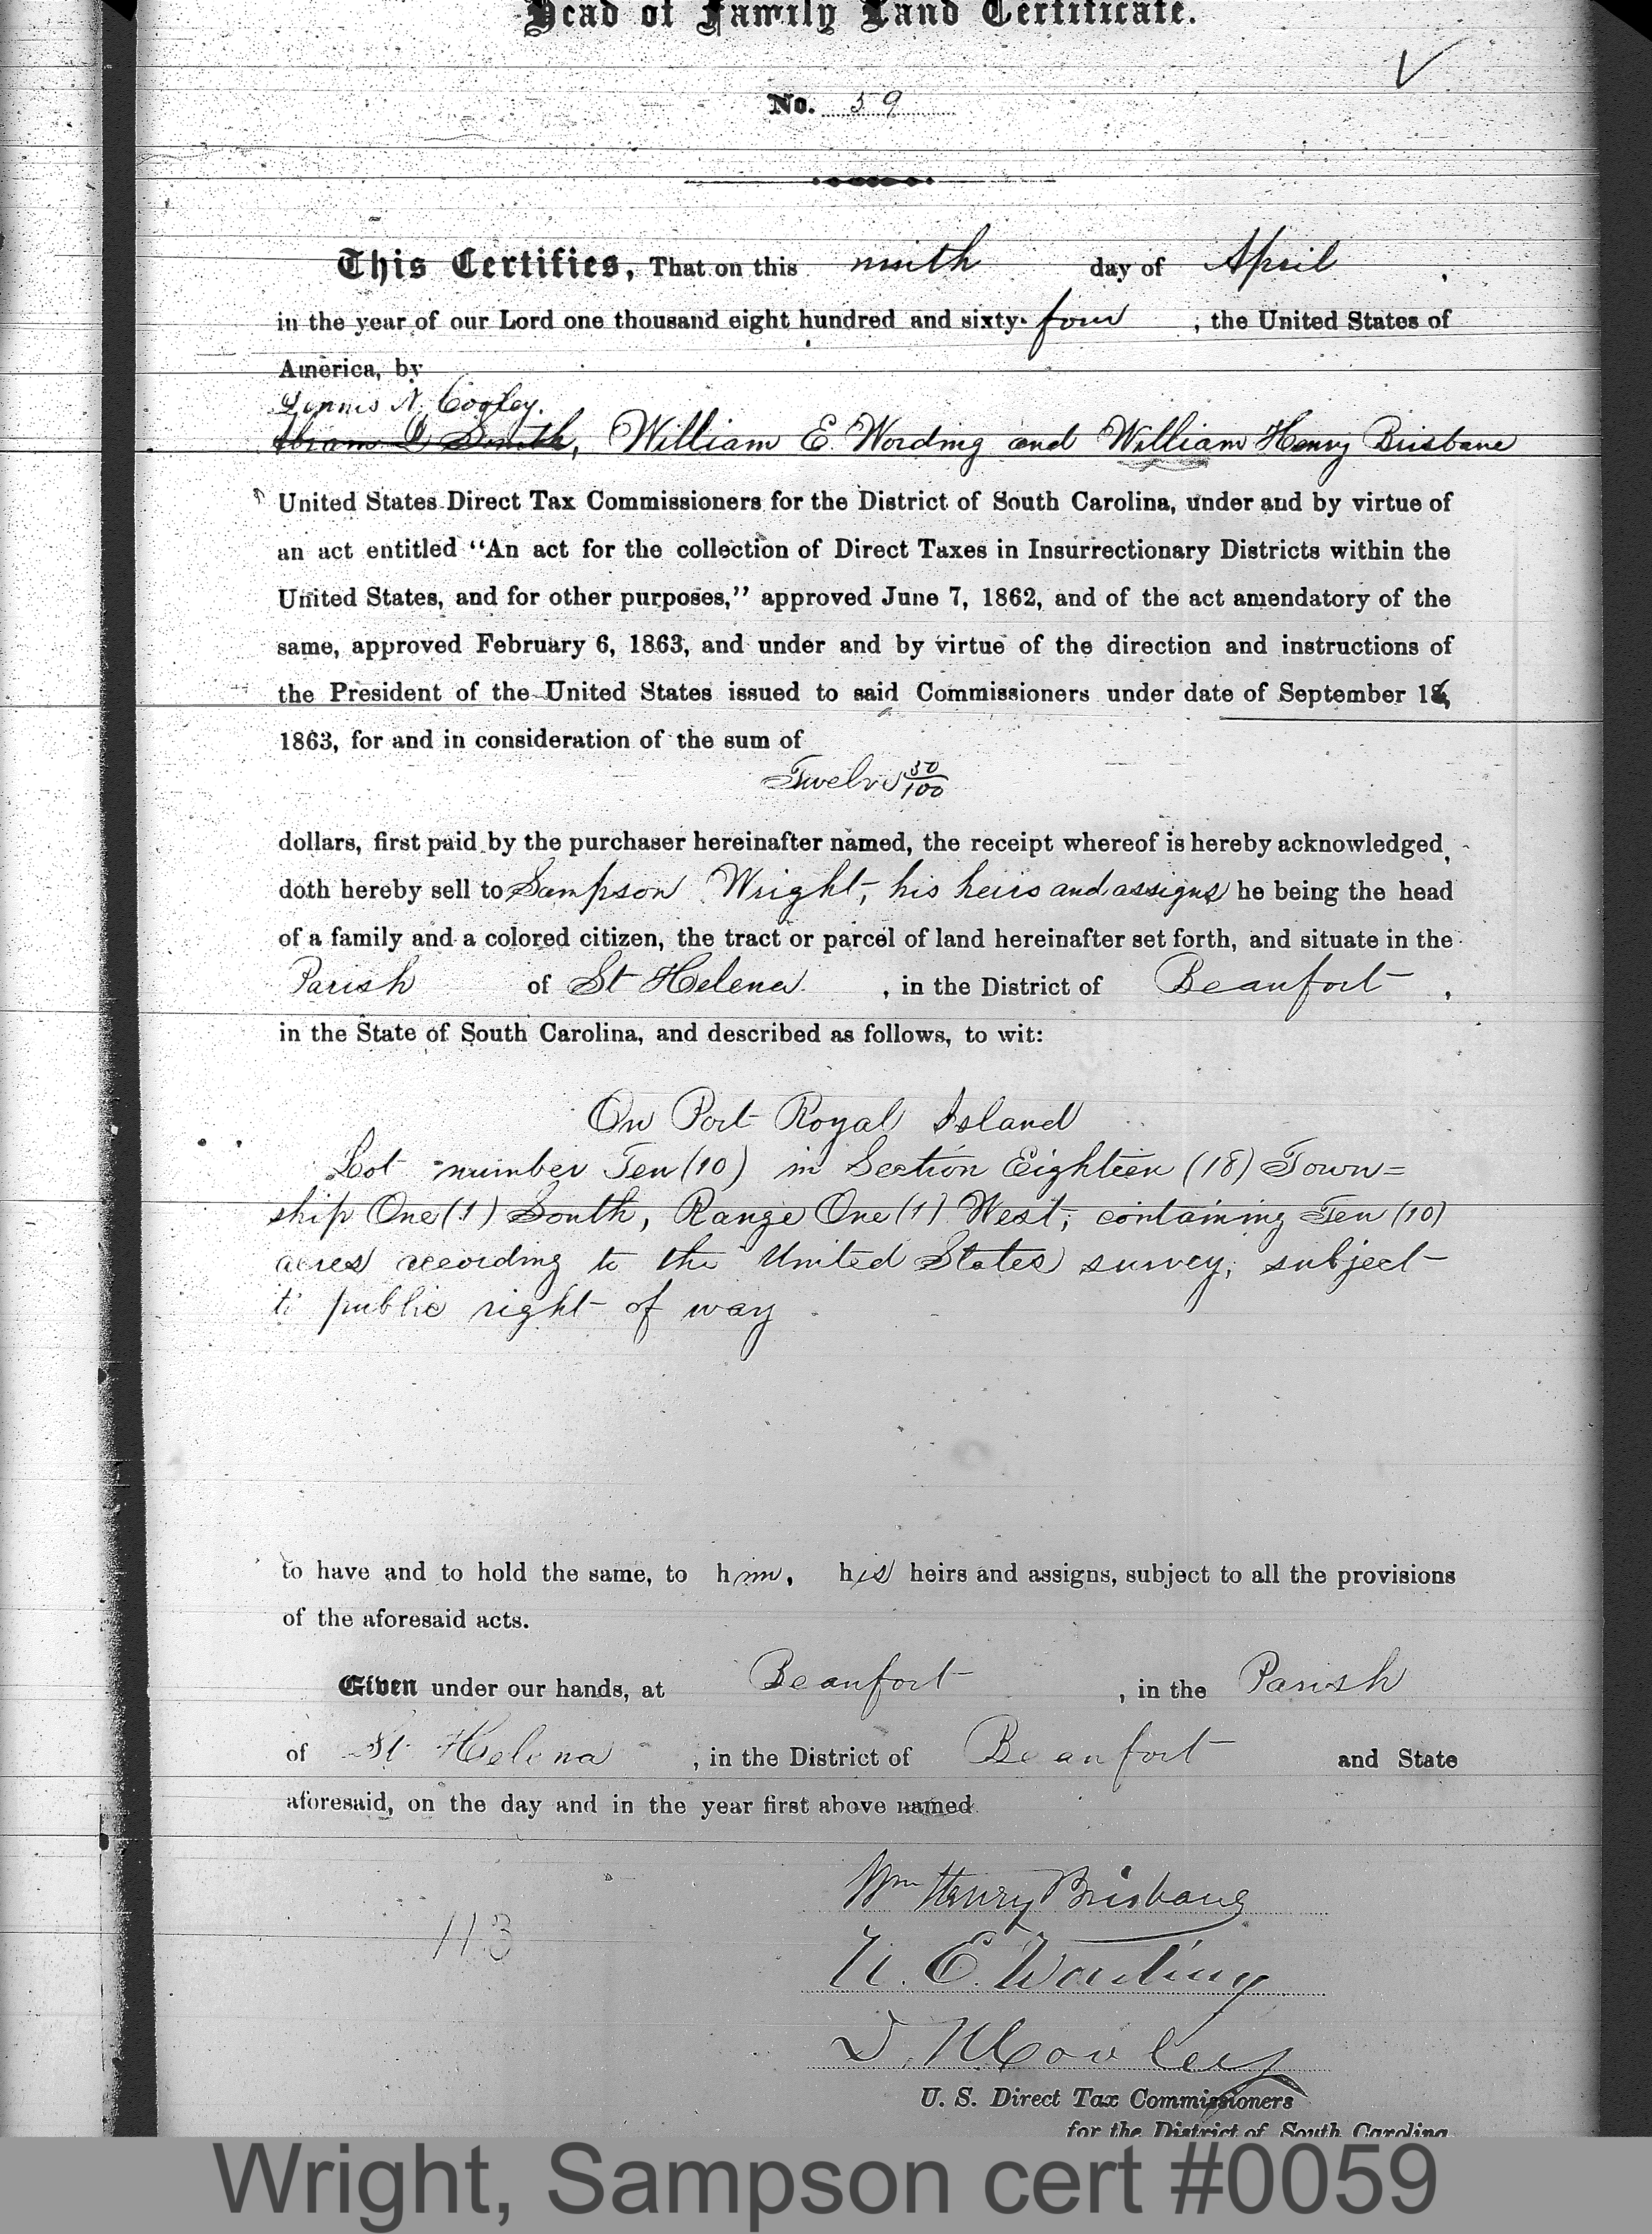 Head of Family Land Certificate.
No. 59
This Certifies, That on this ninth day of April,
in the year of our Lord one thousand eight hundred and sixty-four, the United States of
America, by
Dennis N. Cooley.
Abram D Smith, William E. Wording and William Henry Brisbane
United States Direct Tax Commissioners for the District of South Carolina, under and by virtue of
an act entitled “An act for the collection of Direct Taxes in Insurrectionary Districts within the
United States, and for other purposes,” approved June 7, 1862, and of the act amendatory of the
same, approved February 6, 1863, and under and by virtue of the direction and instructions of
the President of the United States issued to said Commissioners under date of September 16,
1863, for and in consideration of the sum of
Twelve 50/100
dollars, first paid by the purchaser hereinafter named, the receipt whereof is hereby acknowledged,
doth hereby sell to Sampson Wright, his heirs and assigns he being the head
of a family and a colored citizen, the tract or parcel of land hereinafter set forth, and situate in the
Parish of St Helena, in the District of Beaufort,
in the State of South Carolina, and described as follows, to wit:
On Port Royal Island
Lot number Ten (10) in Section Eighteen (18) Town=
ship One (1) South, Range One (1) West, containing Ten (10)
acres according to the United States survey, subject
to public right of way
to have and to hold the same, to him, his heirs and assigns, subject to all the provisions
of the aforesaid acts.
Given under our hands, at Beaufort, in the Parish
of St. Helena, in the District of Beaufort and State
aforesaid, on the day and in the year first above named.
Wm Henry Brisbane
113
W. E. Wording
D. N. Cooley
U. S. Direct Tax Commissioners
for the District of South Carolina.
Wright, Sampson cert #0059